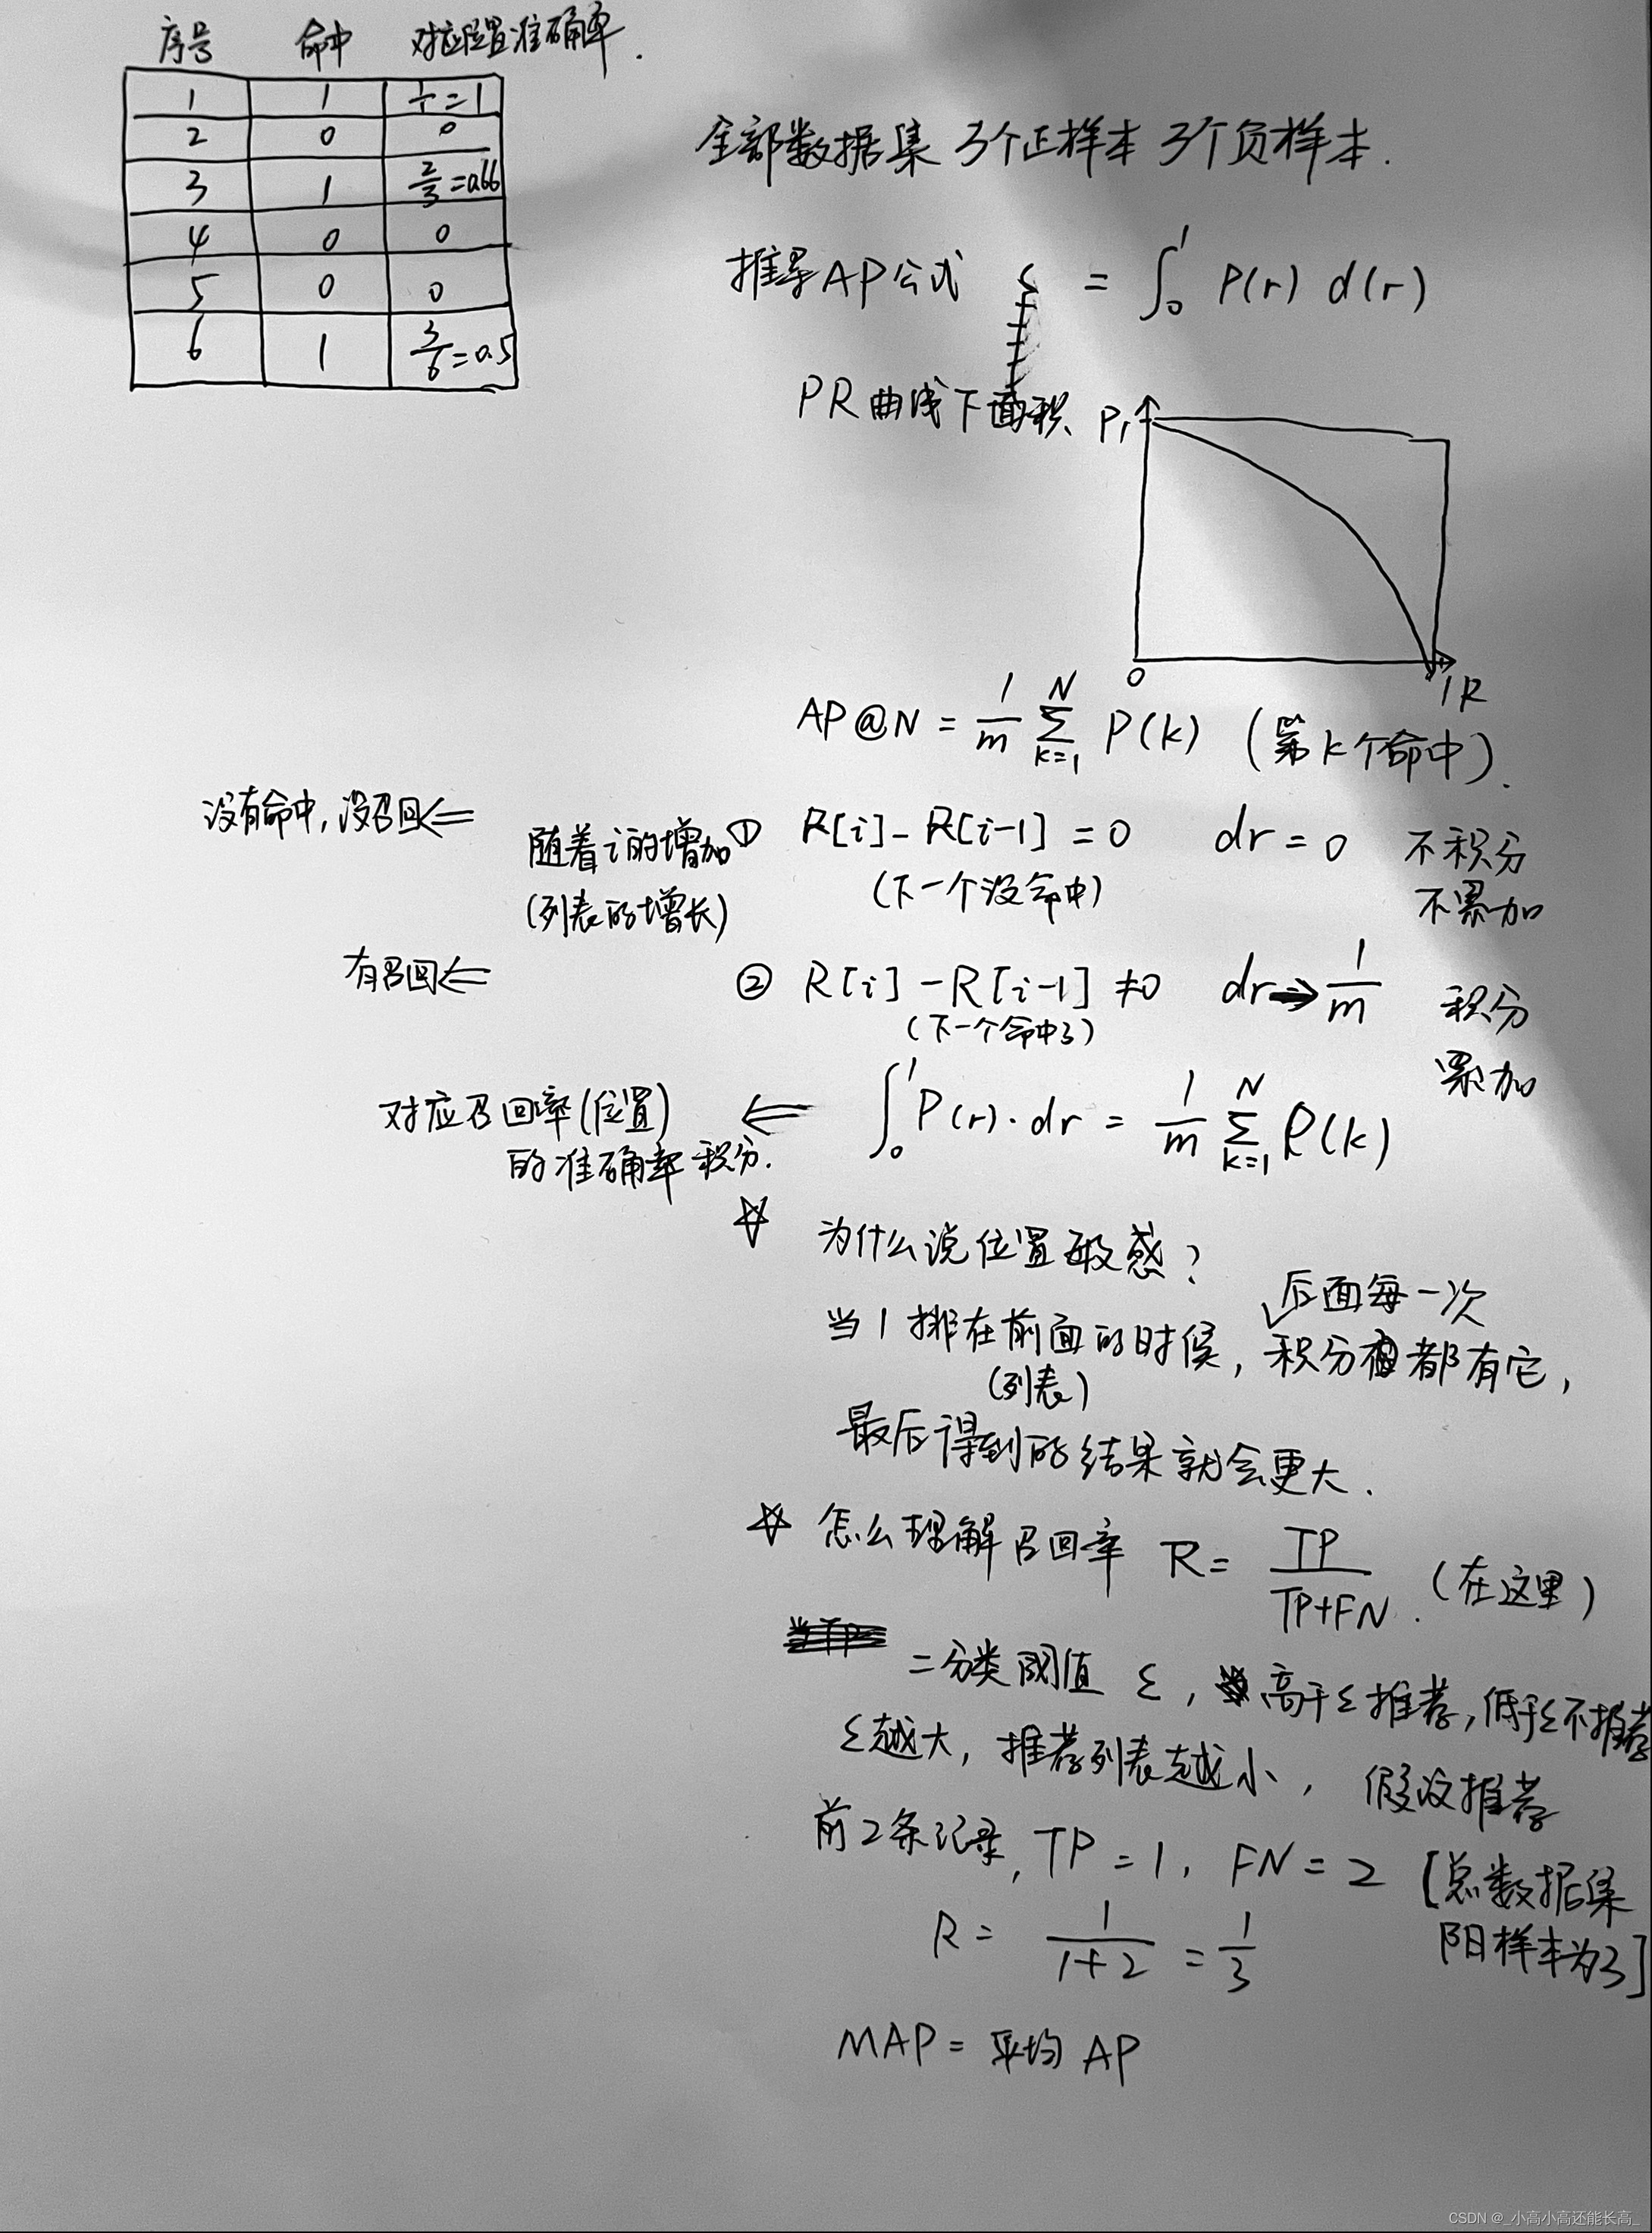 序号 命中 对应位置准确率.
1 1 1/1=1
2 0 0
3 1 2/3=0.66
4 0 0
5 0 0
6 1 3/6=0.5
全部数据集 3个正样本 3个负样本.
推导AP公式 = ∫₀¹ P(r) d(r)
PR曲线下面积
P 1
0
1 R
AP@N = 1/m ∑_{k=1}^{N} P(k) (第k个命中).
没有命中,没召回⇐
随着i的增加 ① R[i]-R[i-1]=0 dr=0 不积分
(列表的增长) (下一个没命中) 不累加
有召回⇐ ② R[i]-R[i-1]≠0 dr⇒1/m 积分
(下一个命中了) 累加
对应召回率(位置) ⇐ ∫₀¹ P(r)·dr = 1/m ∑_{k=1}^{N} P(k)
的准确率积分.
☆ 为什么说位置敏感?
当1排在前面的时候, 后面每一次
(列表) 积分都有它,
最后得到的结果就会更大.
☆ 怎么理解召回率 R= TP/(TP+FN). (在这里)
=分类阈值 ε, 高于ε推荐,低于ε不推荐
ε越大, 推荐列表越小, 假设推荐
前2条记录, TP=1, FN=2 [总数据集
阳样本为3]
R= 1/(1+2) = 1/3
MAP= 平均 AP
CSDN @_小高小高还能长高_